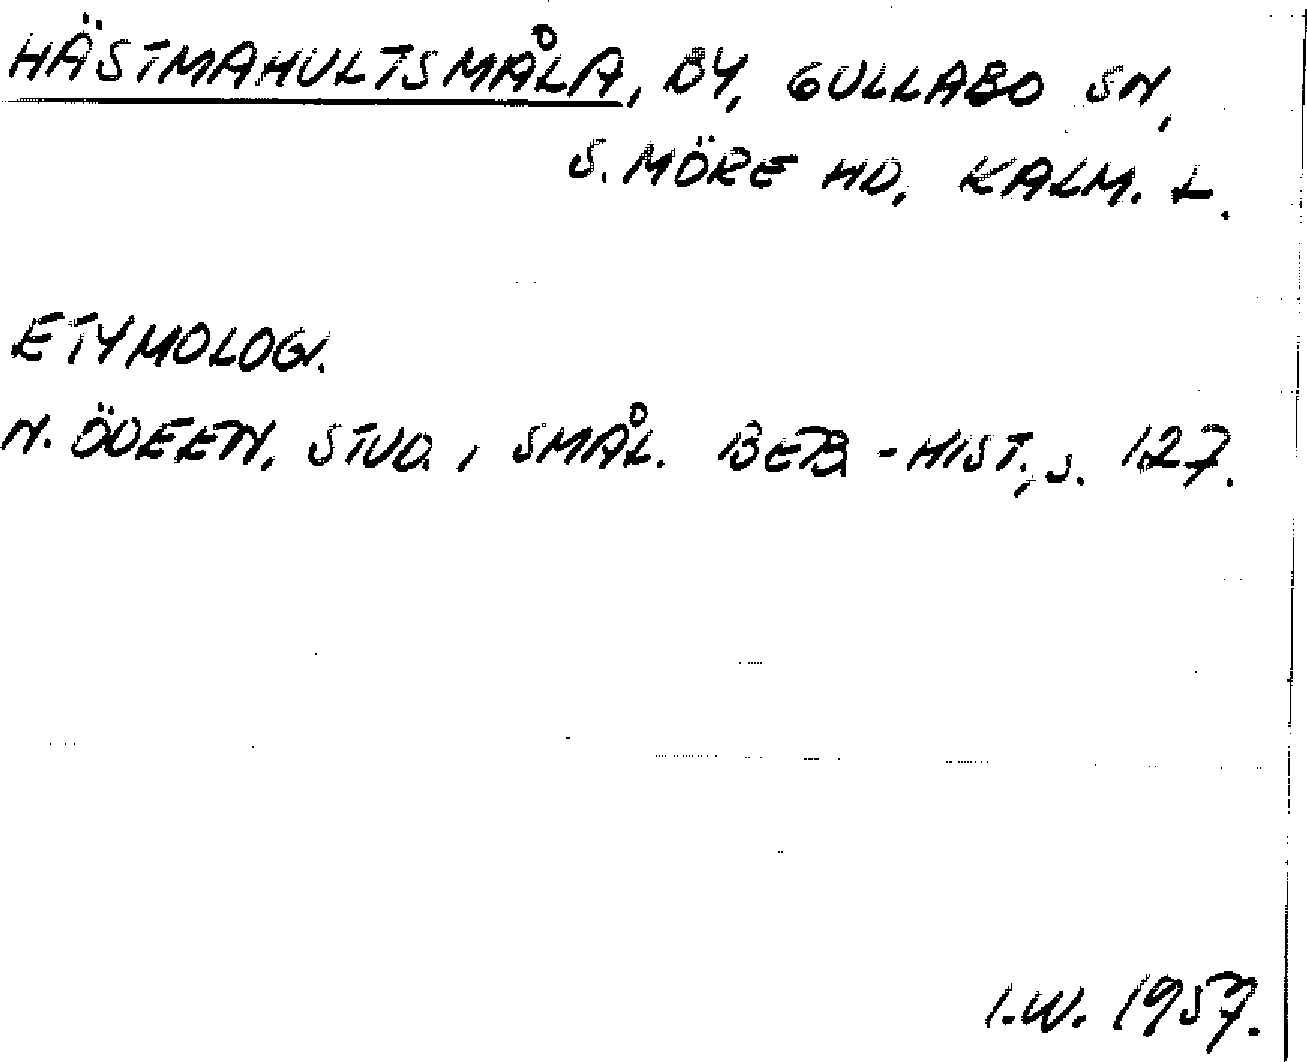 HÄSTMAHULTSMÅLA, BY, GULLABO SN,
S. MÖRE HD, KALM. L.
ETYMOLOGI.
N. ÖDEEN, STUD. I SMÅL. BEB.-HIST., S. 127.
I.W. 1957.